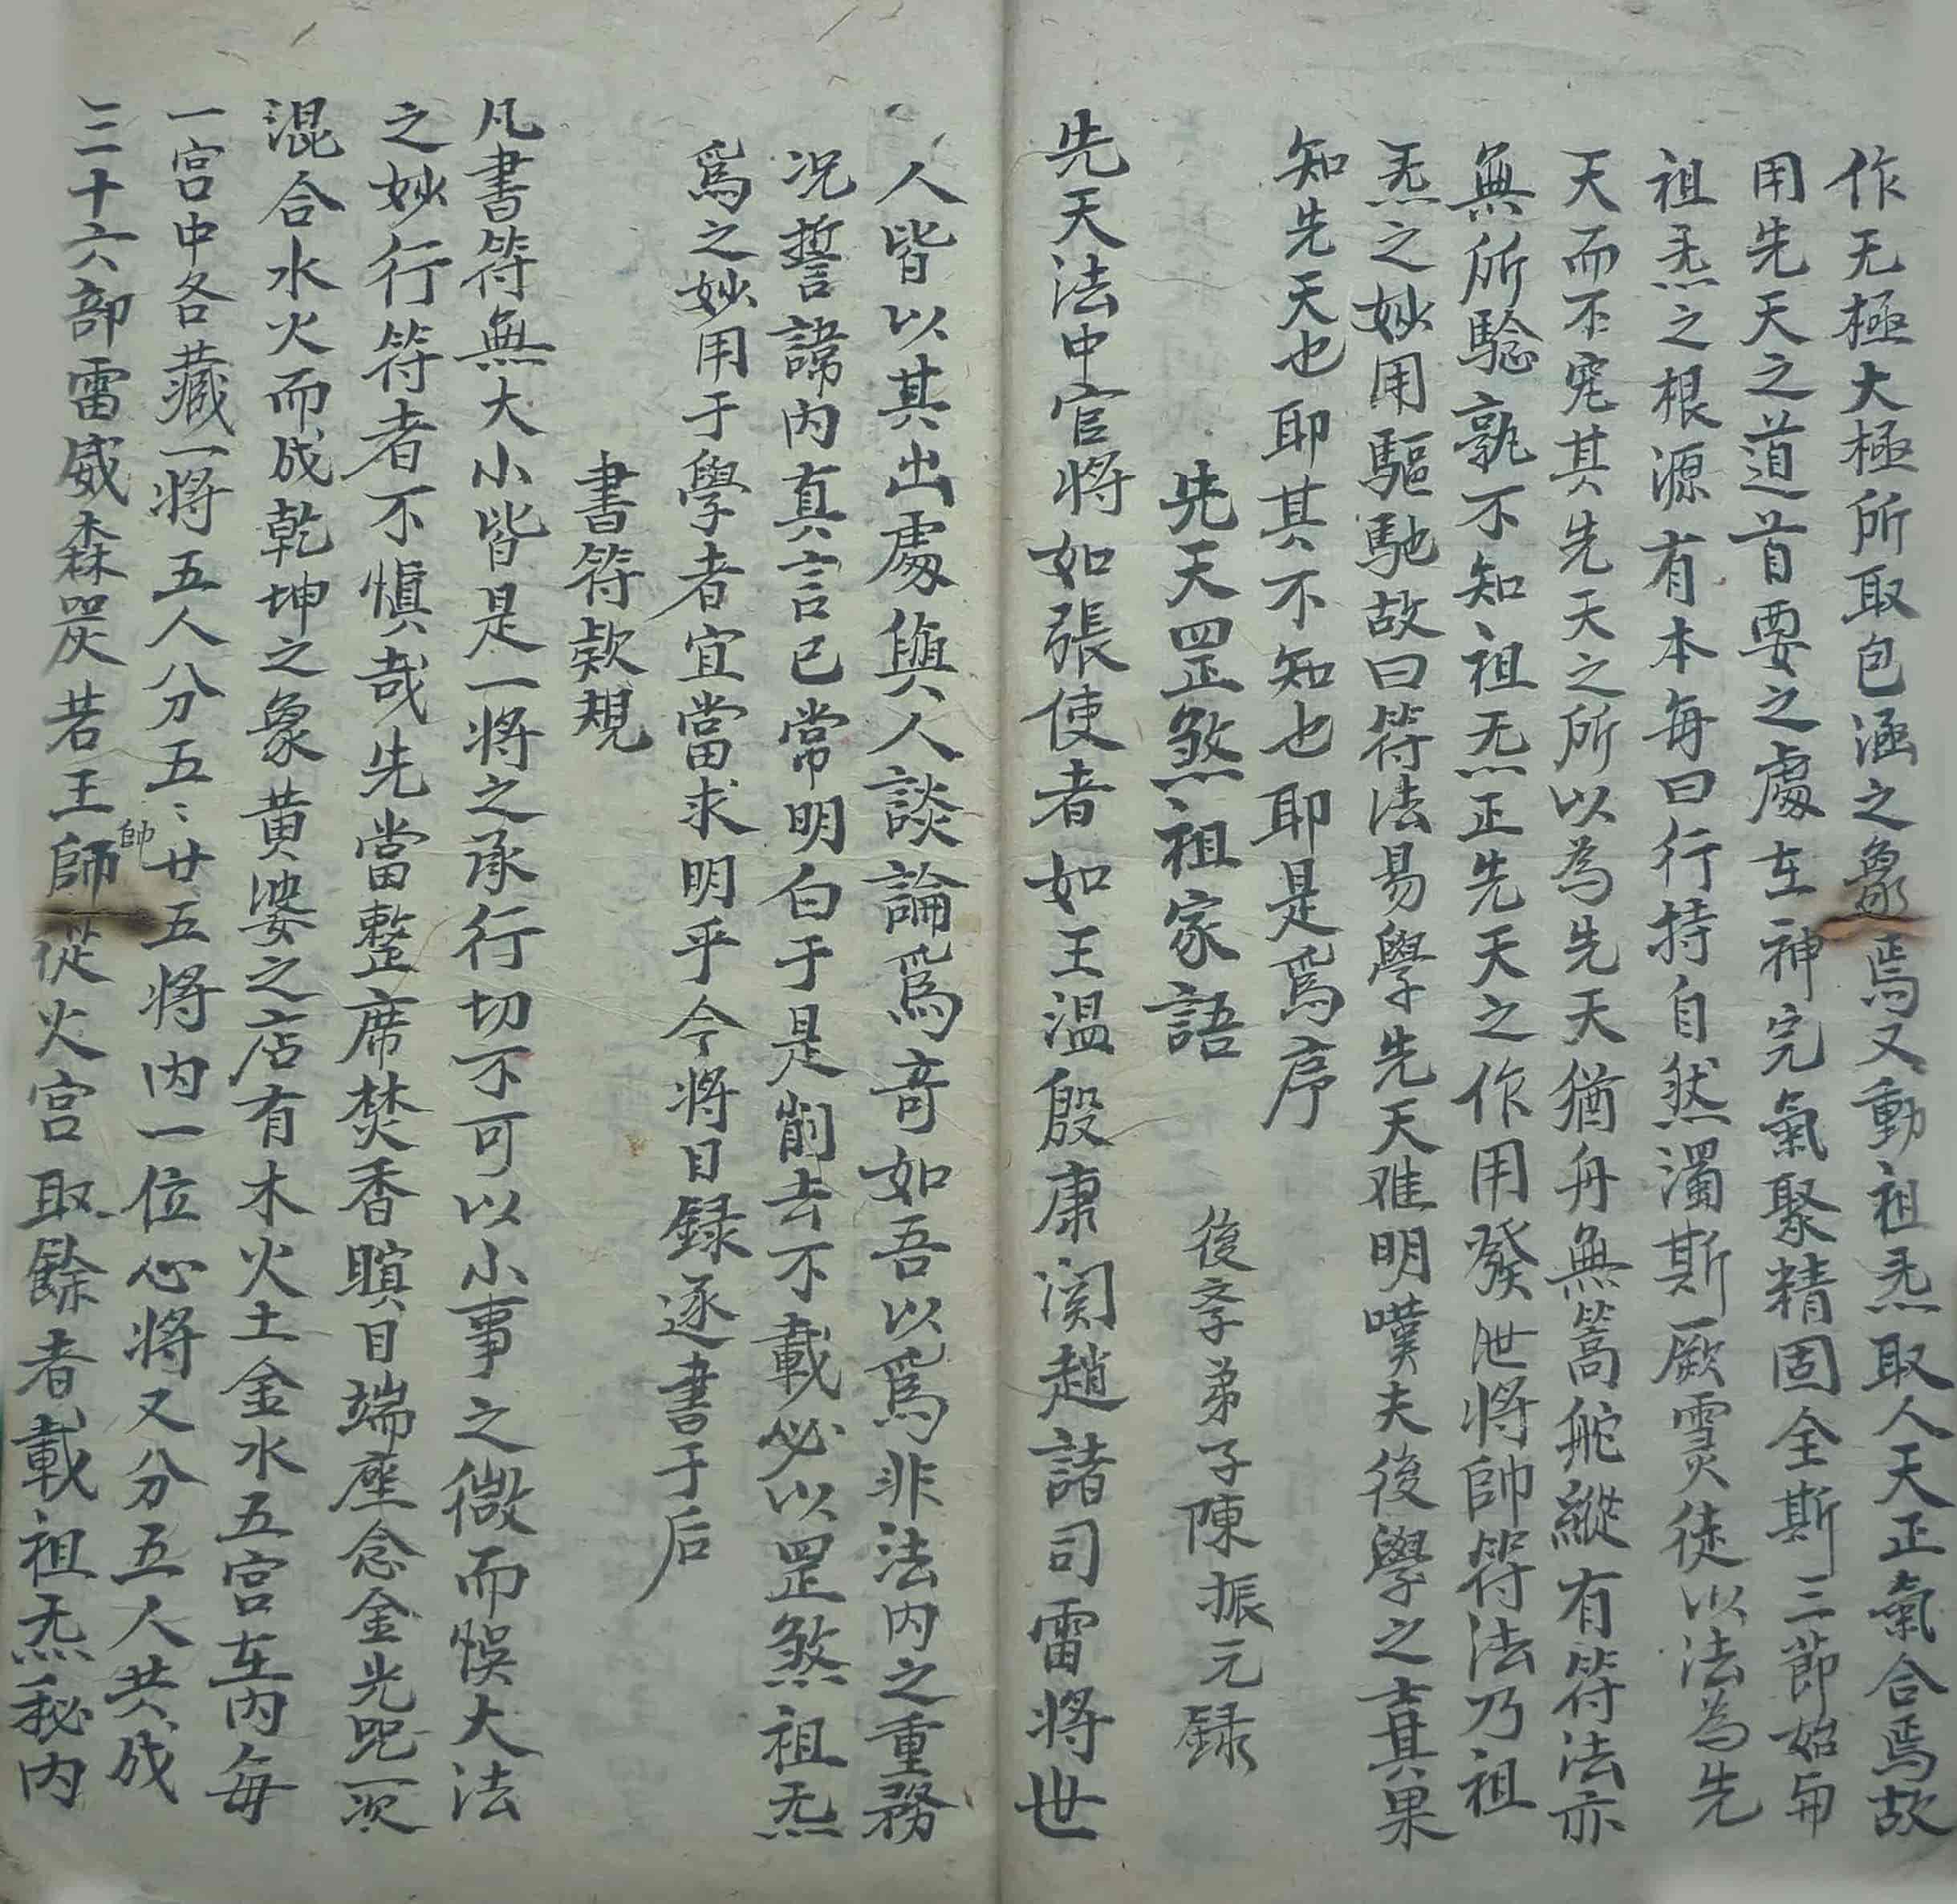 作无極大極所取包涵之象焉又動祖炁取人天正氣合焉故
用先天之道首要之處在神完氣聚精固全斯三節始用
祖炁之根源有本每曰行持自然濁斯厥霛徒以法為先
天而不究其先天之所以為先天猶舟無篙舵縱有符法亦
無所驗孰不知祖炁正先天之作用發泄将帥符法乃祖
炁之妙用驅馳故曰符法易學先天难明嘆夫後學之真果
知先天也耶其不知也耶是爲序
先天罡煞祖家語
後斈弟子陳振元録
先天法中官将如張使者如王温殷康関趙諸司雷将世
人皆以其出處與人談論爲竒如吾以爲非法内之重務
况誓諱内真言已常明白于是削去不載必以罡煞祖炁
爲之妙用于學者宜當求明乎今将目録逐書于后
書符欵規
凡書符無大小皆是一将之承行切不可以小事之微而悞大法
之妙行符者不慎哉先當整席焚香瞑目端座念金光呪一次
混合水火而成乾坤之象黄婆之店有木火土金水五宫在内每
一宫中各藏一将五人分五〻廿五将内一位心将又分五人共成
三十六部雷威森嚴若王師帥從火宫取餘者載祖炁秘内